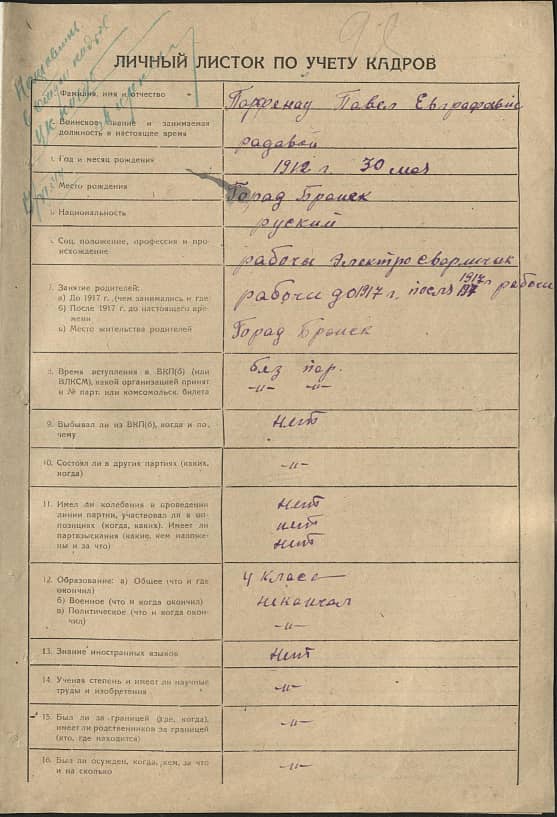 ЛИЧНЫЙ ЛИСТОК ПО УЧЕТУ КАДРОВ
Фамилия, имя и отчество
Павел
Воинское звание и занимаемая
должность в настоящее время
радавой
3. Год и месяц рождения
1912 г. 30 мая
Место рождения
Горад Брянск
Национальность
руский
Соц. положение, профессия и про-
исхождение
рабочы электросварщик
7. Занятие родителей:
а) До 1917 г. (чем занимались и где
б) После 1917 г. до настоящего вре-
мени
в) Место жительства родителей
рабочи до 1917 г. после 1917 г рабочи
Горад Брянск
8. Время вступления в ВКП(б) (или
ВЛКСМ), какой организацией принят
и № парт. или комсомольск. билета
без пар.
-"- -"-
9. Выбывал ли из ВКП(б), когда и по-
чему
нет
10. Состоял ли в других партиях (каких,
когда)
-"-
11. Имел ли колебания в проведении
линии партии, участвовал ли в оп-
позициях (когда, каких). Имеет ли
партвзыскания (какие, кем наложе-
ны и за что)
нет
нет
нет
12. Образование: а) Общее (что и где
окончил)
б) Военное (что и когда окончил)
в) Политическое (что и когда окон-
чил)
4 класс
некончал
-"-
13. Знание иностранных языков
нет
14. Ученая степень и имеет ли научные
труды и изобретения
-"-
15. Был ли за границей (где, когда),
имеет ли родственников за границей
(кто, где находится)
-"-
16. Был ли осужден, когда, кем, за что
и на сколько
-"-